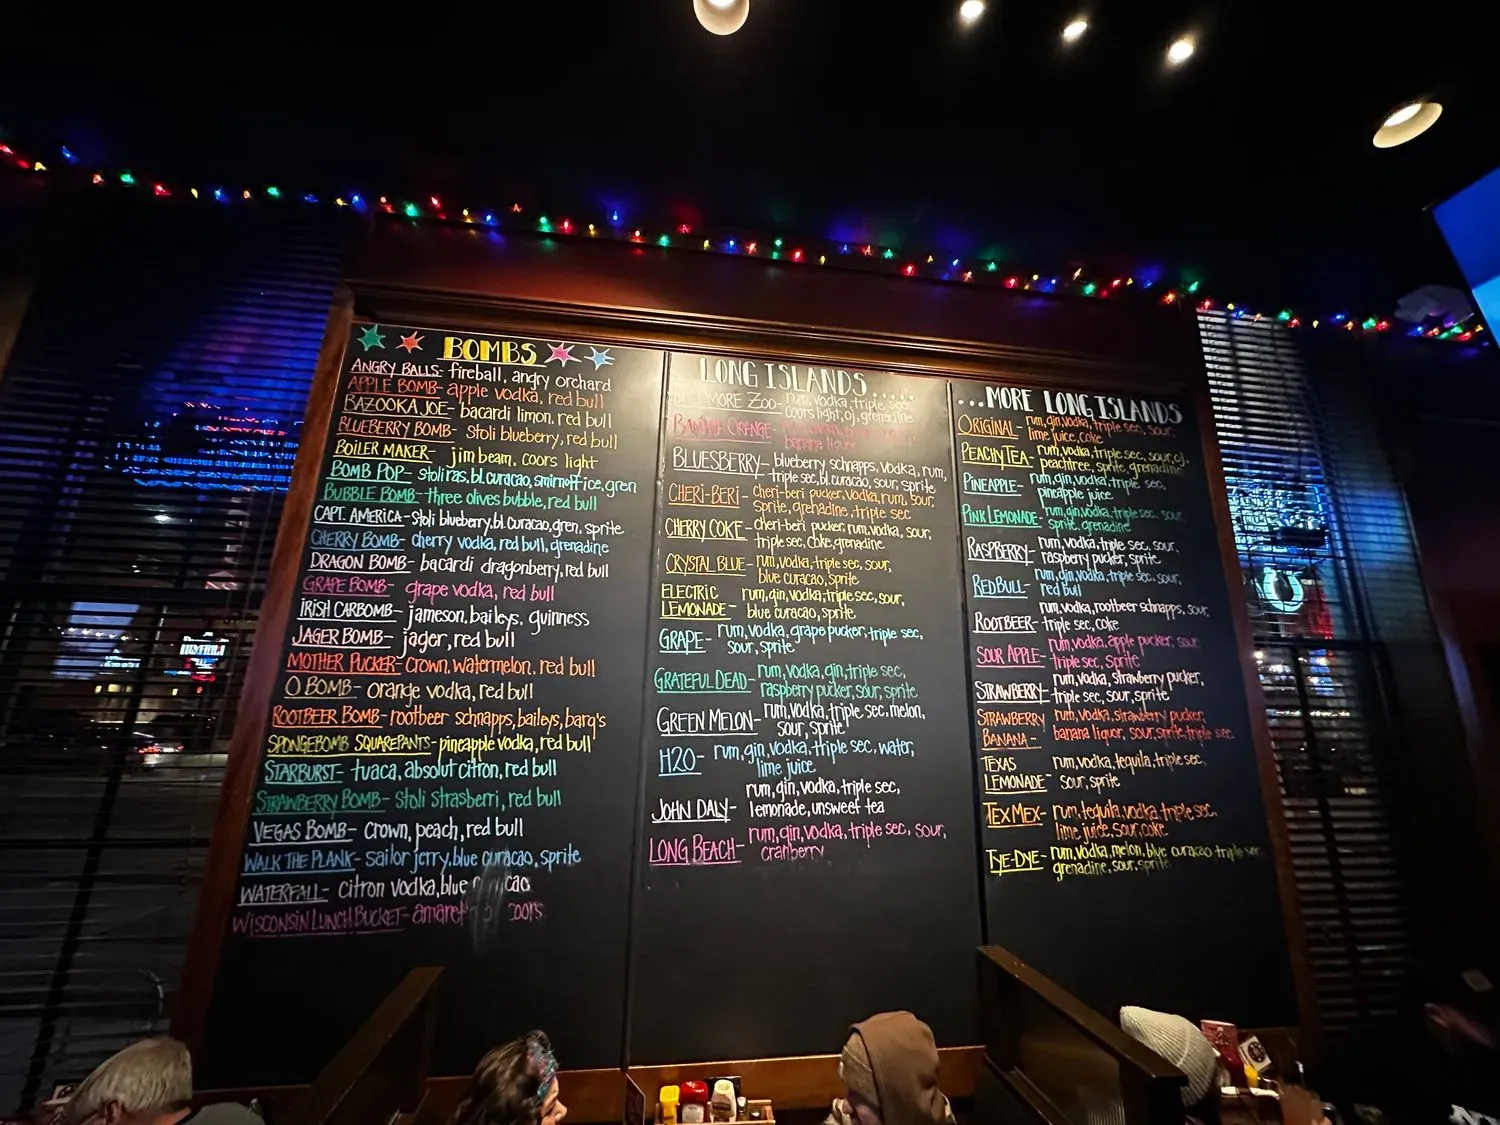 BOMBS
ANGRY BALLS- fireball, angry orchard
APPLE BOMB- apple vodka, red bull
BAZOOKA JOE- bacardi limon, red bull
BLUEBERRY BOMB- stoli blueberry, red bull
BOILER MAKER- jim beam, coors light
BOMB POP- stoli ras, bl. curacao, smirnoff ice, gren
BUBBLE BOMB- three olives bubble, red bull
CAPT. AMERICA- stoli blueberry, bl. curacao, gren, sprite
CHERRY BOMB- cherry vodka, red bull, grenadine
DRAGON BOMB- bacardi dragonberry, red bull
GRAPE BOMB- grape vodka, red bull
IRISH CARBOMB- jameson, baileys, guinness
JAGER BOMB- jager, red bull
MOTHER PUCKER- crown, watermelon, red bull
O BOMB- orange vodka, red bull
ROOTBEER BOMB- rootbeer schnapps, baileys, barq's
SPONGEBOMB SQUAREPANTS- pineapple vodka, red bull
STARBURST- tuaca, absolut citron, red bull
STRAWBERRY BOMB- stoli strasberri, red bull
VEGAS BOMB- crown, peach, red bull
WALK THE PLANK- sailor jerry, blue curacao, sprite
WATERFALL- citron vodka, blue
WISCONSIN LUNCH BUCKET- coors
LONG ISLANDS.....
ZOO- rum, vodka, triple sec,
coors light, oj, grenadine
ORANGE-
BLUESBERRY- blueberry schnapps, vodka, rum,
triple sec, bl. curacao, sour, sprite
CHERI-BERI- cheri-beri pucker, vodka, rum, sour,
sprite, grenadine, triple sec
CHERRY COKE- cheri-beri pucker, rum, vodka, sour,
triple sec, coke, grenadine
CRYSTAL BLUE- rum, vodka, triple sec, sour,
blue curacao, sprite
ELECTRIC LEMONADE- rum, gin, vodka, triple sec, sour,
blue curacao, sprite
GRAPE- rum, vodka, grape pucker, triple sec,
sour, sprite
GRATEFUL DEAD- rum, vodka, gin, triple sec,
raspberry pucker, sour, sprite
GREEN MELON- rum, vodka, triple sec, melon,
sour, sprite
H2O- rum, gin, vodka, triple sec, water,
lime juice
JOHN DALY- rum, gin, vodka, triple sec,
lemonade, unsweet tea
LONG BEACH- rum, gin, vodka, triple sec, sour,
cranberry
...MORE LONG ISLANDS
ORIGINAL- rum, gin, vodka, triple sec, sour,
lime juice, coke
PEACHY TEA- rum, vodka, triple sec, sour, oj,
peachtree, sprite, grenadine
PINEAPPLE- rum, gin, vodka, triple sec,
pineapple juice
PINK LEMONADE- rum, gin, vodka, triple sec, sour,
sprite, grenadine
RASPBERRY- rum, vodka, triple sec, sour,
raspberry pucker, sprite
RED BULL- rum, gin, vodka, triple sec, sour,
red bull
ROOTBEER- rum, vodka, rootbeer schnapps, sour,
triple sec, coke
SOUR APPLE- rum, vodka, apple pucker, sour,
triple sec, sprite
STRAWBERRY- rum, vodka, strawberry pucker,
triple sec, sour, sprite
STRAWBERRY BANANA- rum, vodka, strawberry pucker,
banana liquor, sour, sprite, triple sec
TEXAS LEMONADE- rum, vodka, tequila, triple sec,
sour, sprite
TEX MEX- rum, tequila, vodka, triple sec,
lime juice, sour, coke
TYE-DYE- rum, vodka, melon, blue curacao, triple sec,
grenadine, sour, sprite